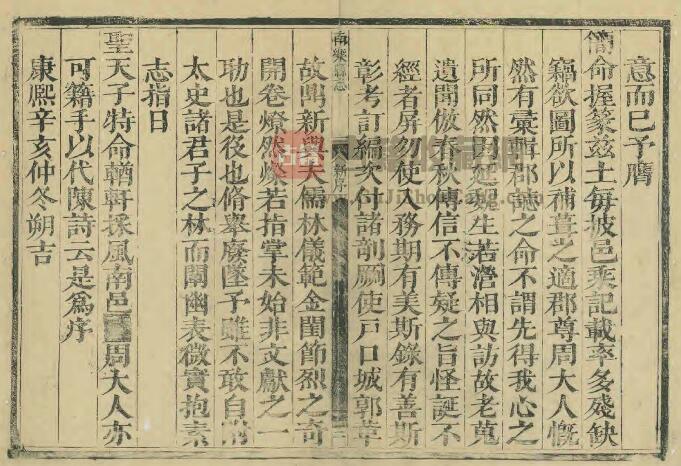 意而已予膺
簡命握篆兹土每披邑乘記載率多殘缺
竊欲圖所以補葺之適郡尊周大人慨
然有彙輯郡志之命不謂先得我心之
所同然因延魏生若瀅相與訪故老蒐
遺聞倣春秋傳信不傳疑之旨怪誕不
經者屏勿使入務期有美斯錄有善斯
彰考訂編次付諸剞劂使戶口城郭葦
南樂縣志
新序
故鼎新與夫儒林儀範金閨節烈之奇
開卷燎然燦若指掌未始非文獻之一
助也是後也脩舉廢墜予雖不敢自附
太史諸君子之林而闡幽表微實抱素
志指日
聖天子特命輶軒採風南邑
周大人亦
可籍手以代陳詩云是爲序
康熙辛亥仲冬朔吉